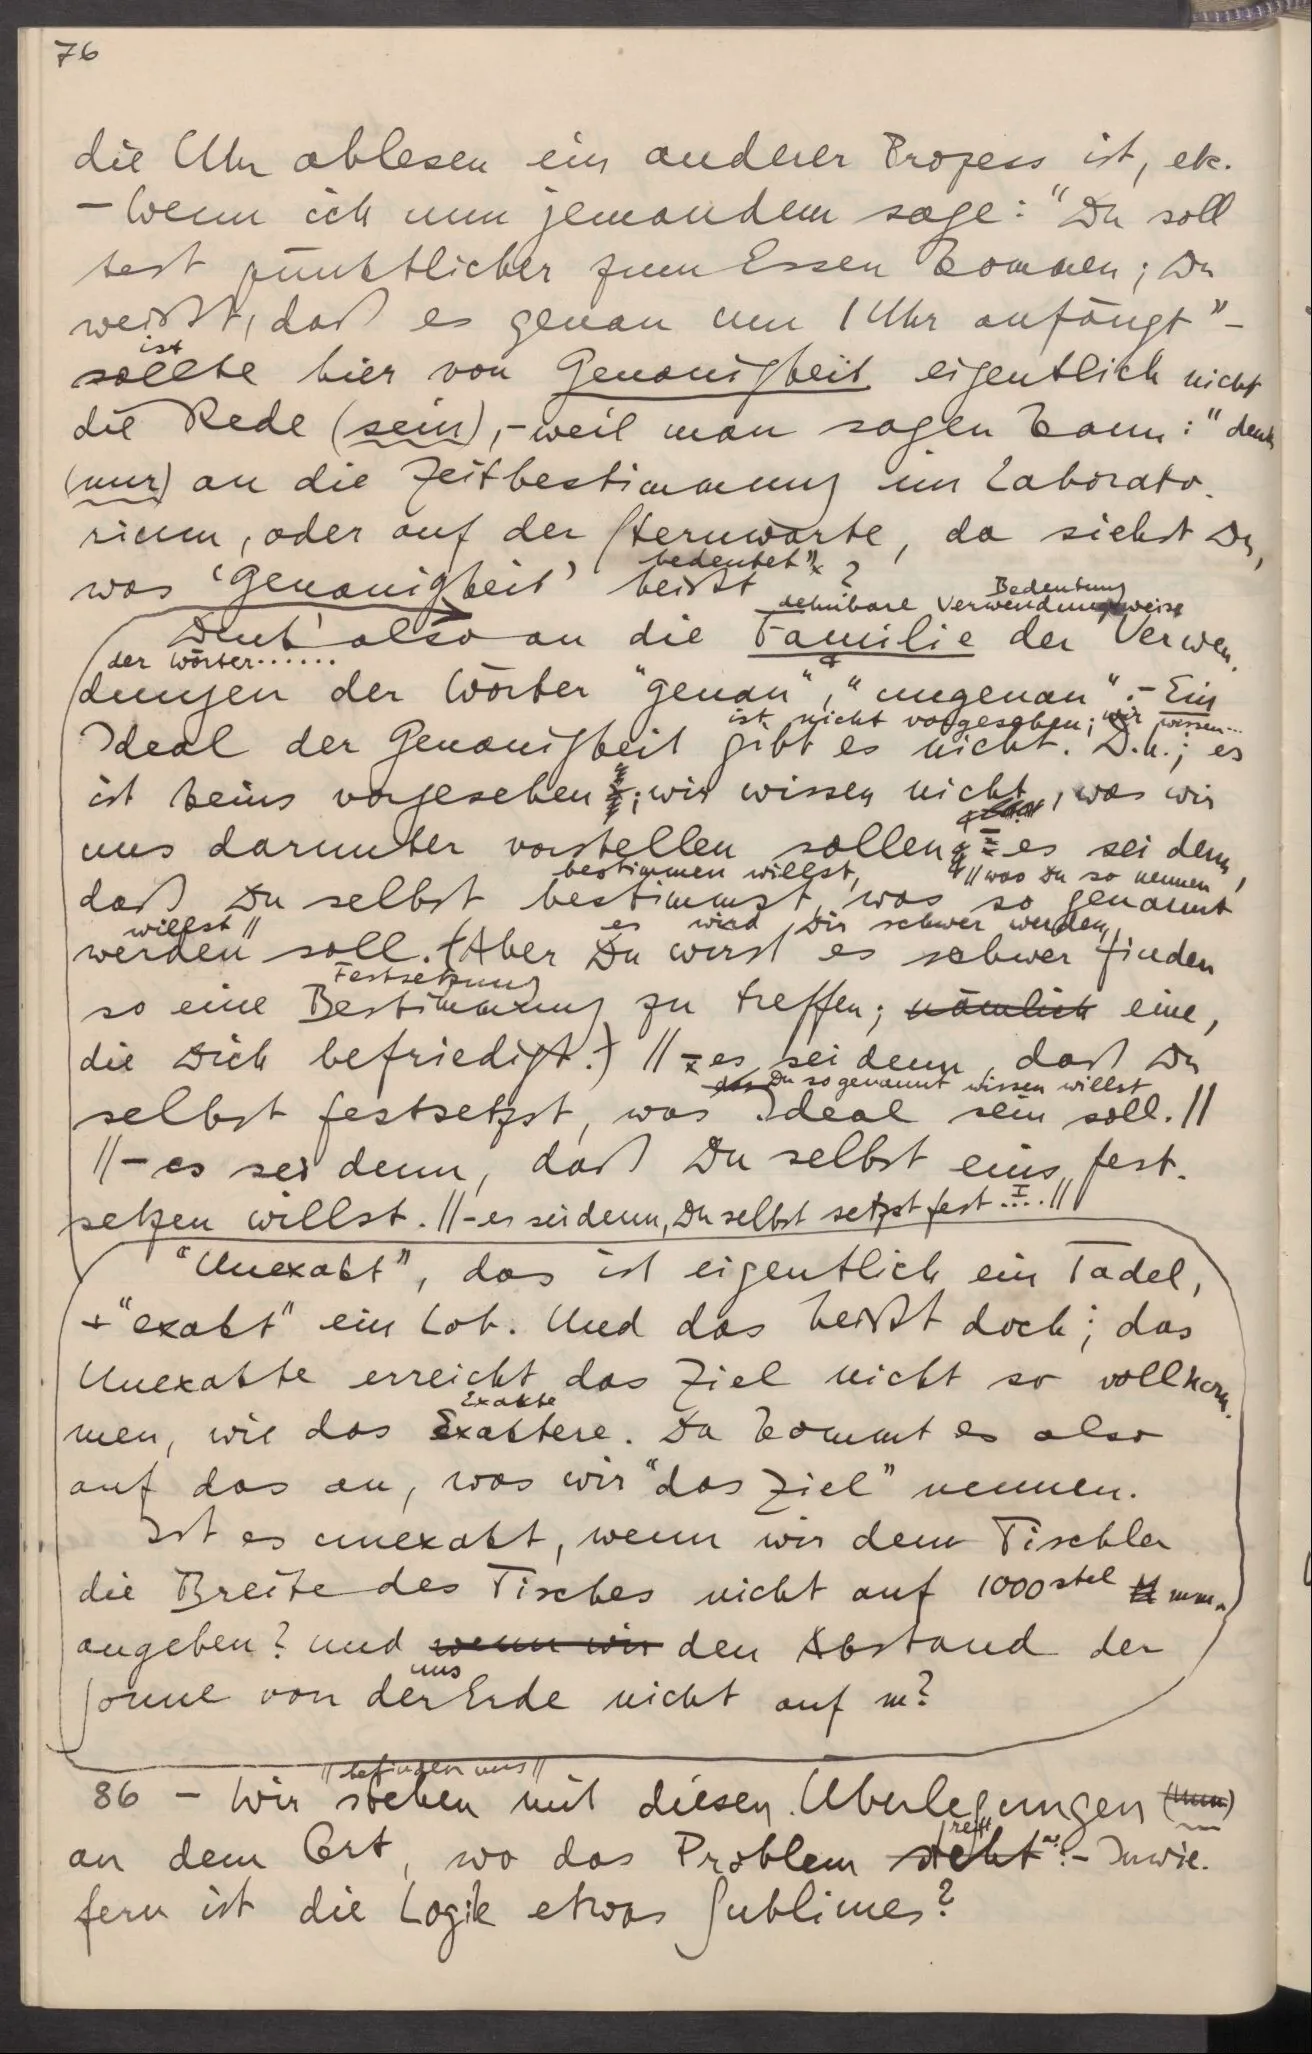 76
die Uhr ablesen ein anderer Prozess ist, etc.
– Wenn ich nun jemandem sage: "Du soll
test pünktlicher zum Essen kommen; Du
weißt, daß es genau um 1 Uhr anfängt" –
ist
sollte hier von Genauigkeit eigentlich nicht
die Rede (sein), – weil man sagen kann: "denk
(nur) an die Zeitbestimmung im Laborato-
rium, oder auf der Sternwarte, da siehst Du,
bedeutet"
was 'Genauigkeit' heißt ?
Bedeutung
dehnbare Verwendungsweise
Denk' also an die Familie der Verwen-
der Wörter......
dungen der Wörter "genau", "ungenau". – Ein
ist nicht vorgesehen; wir wissen...
Ideal der Genauigkeit gibt es nicht. D.h.; es
ist keins vorgesehen; wir wissen nicht, was wir
uns darunter vorstellen sollen – es sei denn,
bestimmen willst, // was Du so nennen
daß Du selbst bestimmst, was so genannt
willst // es wird Dir schwer werden,
werden soll. (Aber Du wirst es schwer finden
Festsetzung
so eine Bestimmung zu treffen; nämlich eine,
die Dich befriedigt.) // – es sei denn, daß Du
das Du so genannt wissen willst
selbst festsetzst, was Ideal sein soll. //
// – es sei denn, daß Du selbst eins fest-
setzen willst. // – es sei denn, Du selbst setzst fest .... //
"Unexakt", das ist eigentlich ein Tadel,
+ "exakt" ein Lob. Und das heißt doch; das
Unexakte erreicht das Ziel nicht so vollkom-
Exakte
men, wie das Exaktere. Da kommt es also
auf das an, was wir "das Ziel" nennen.
Ist es unexakt, wenn wir dem Tischler
die Breite des Tisches nicht auf 1000stel mm.
angeben? und wenn wir den Abstand der
uns
Sonne von der Erde nicht auf m?
// befinden uns //
86 – Wir stehen mit diesen Überlegungen (nun)
an dem Ort, wo das Problem steht: – Inwie-
fern ist die Logik etwas Sublimes?